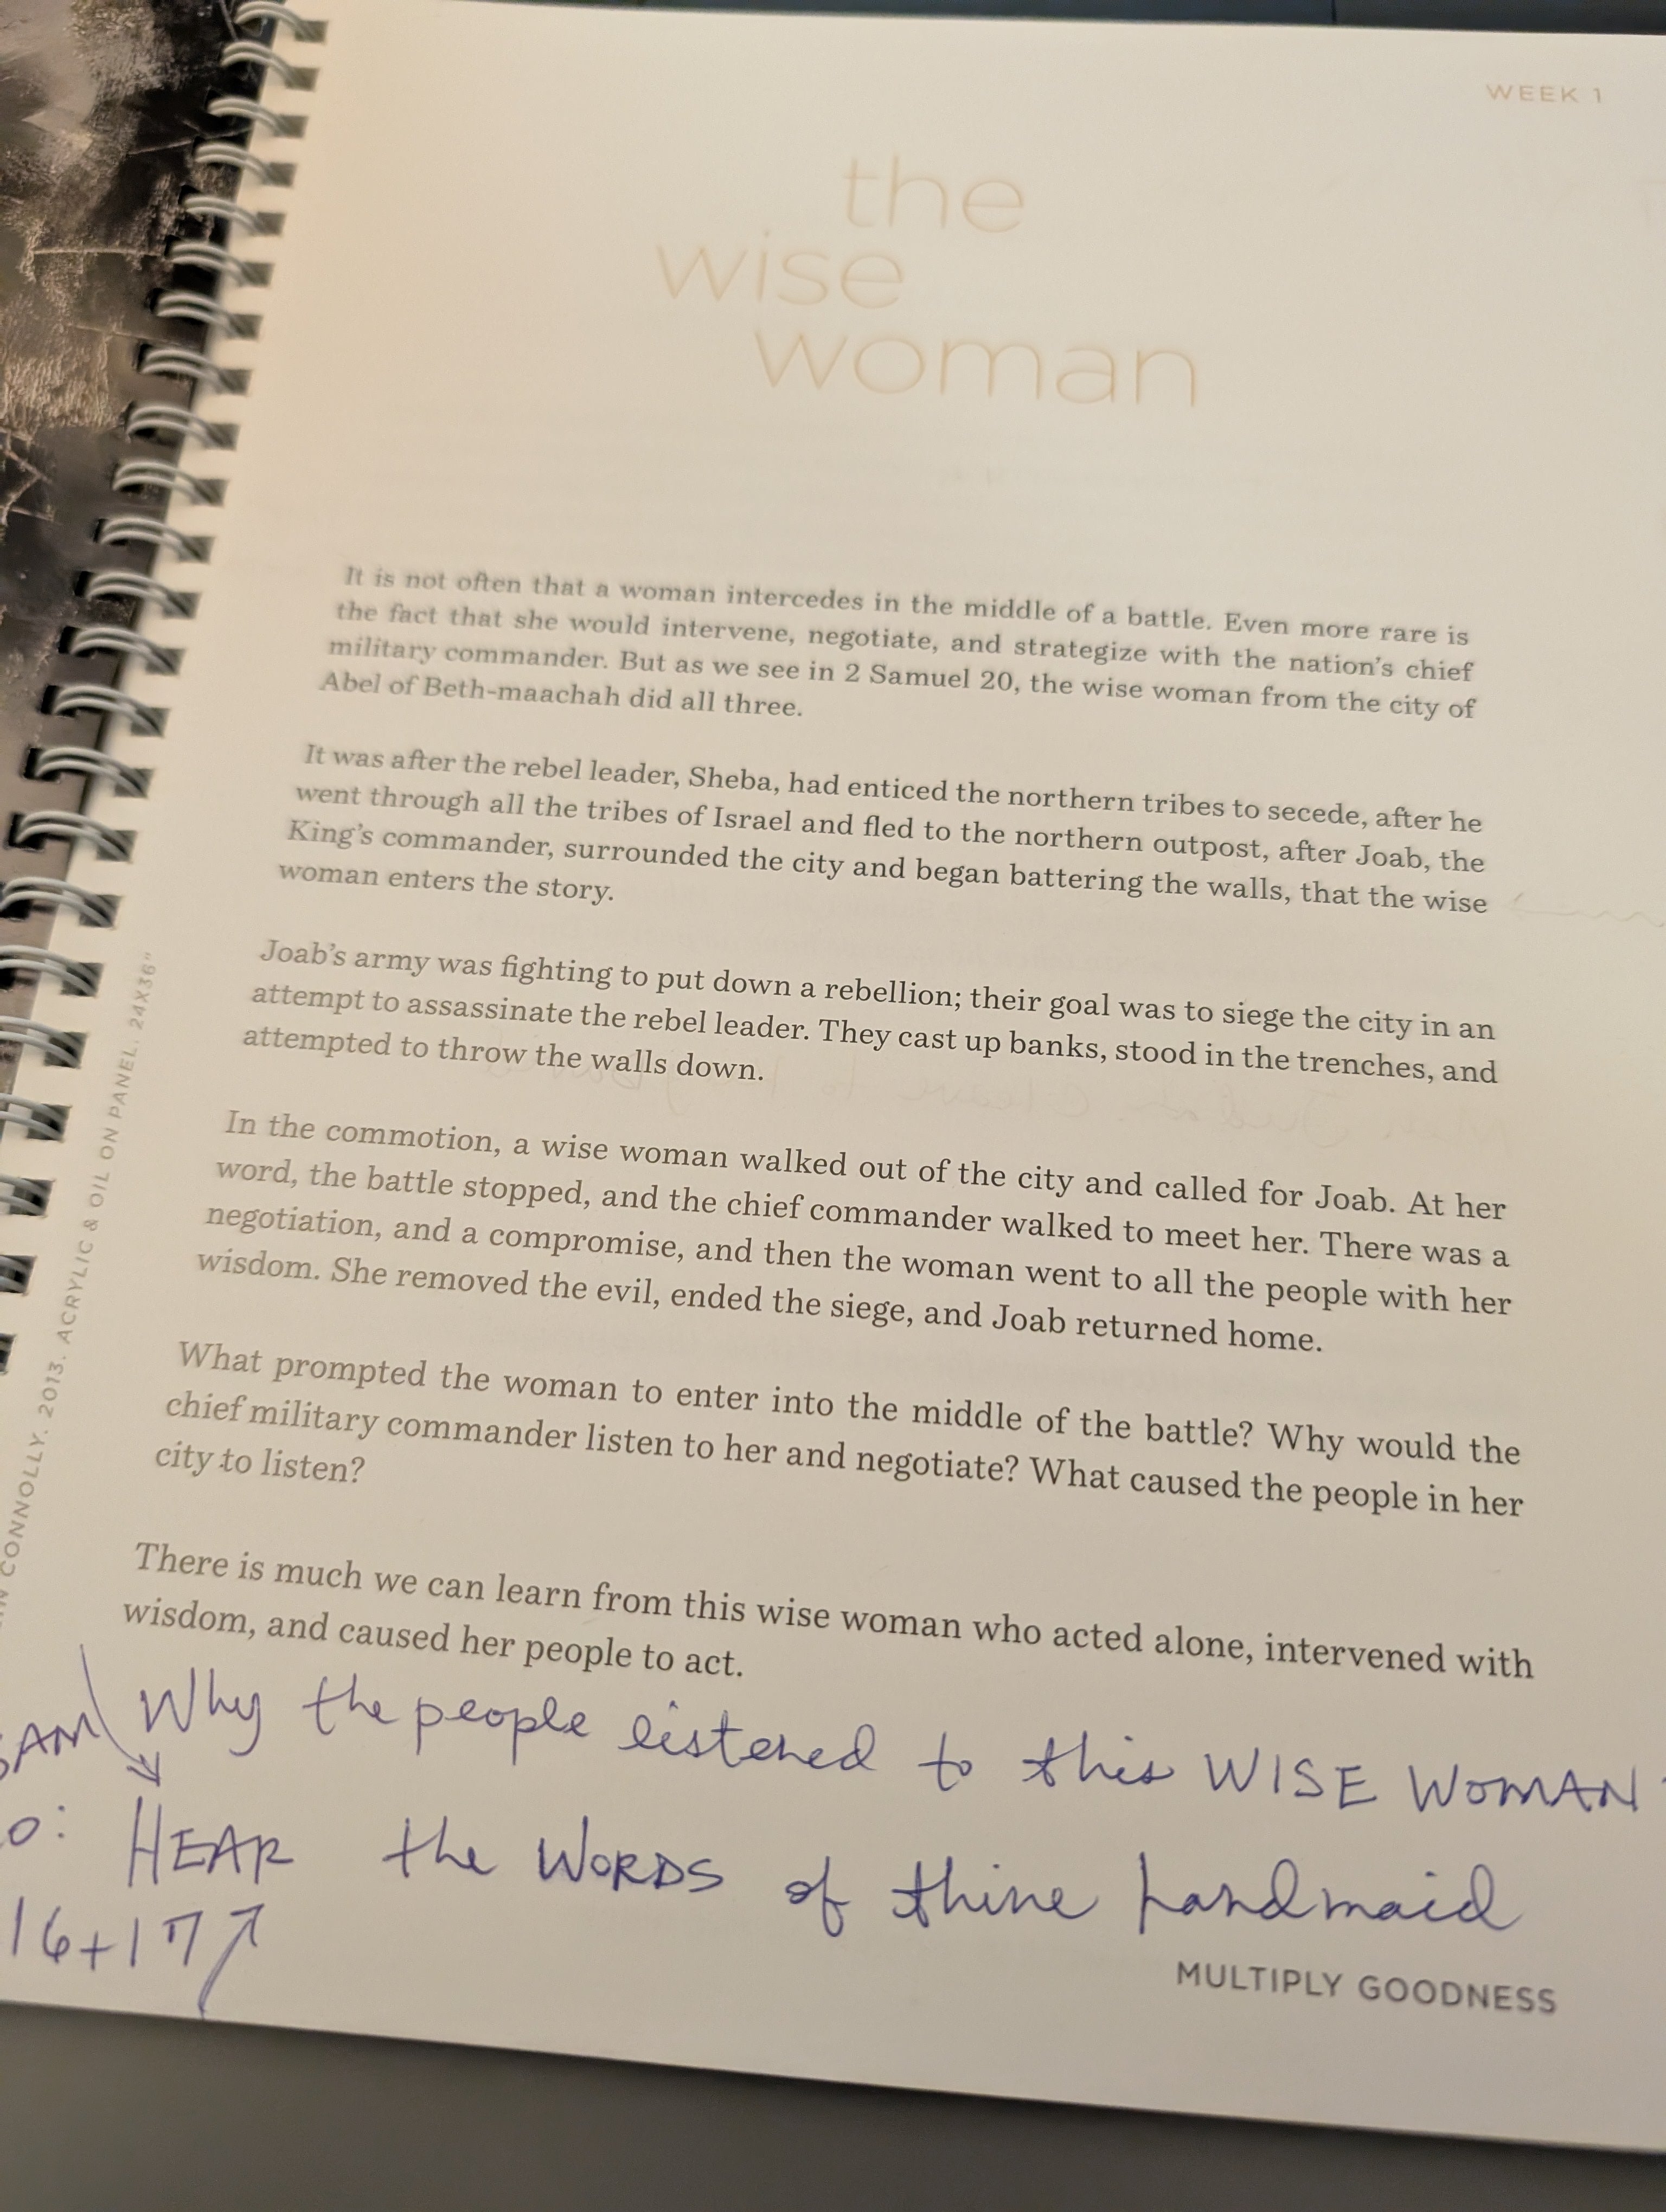 WEEK 1
the
wise
woman
It is not often that a woman intercedes in the middle of a battle. Even more rare is
the fact that she would intervene, negotiate, and strategize with the nation's chief
military commander. But as we see in 2 Samuel 20, the wise woman from the city of
Abel of Beth-maachah did all three.
It was after the rebel leader, Sheba, had enticed the northern tribes to secede, after he
went through all the tribes of Israel and fled to the northern outpost, after Joab, the
King's commander, surrounded the city and began battering the walls, that the wise
woman enters the story.
Joab's army was fighting to put down a rebellion; their goal was to siege the city in an
attempt to assassinate the rebel leader. They cast up banks, stood in the trenches, and
attempted to throw the walls down.
In the commotion, a wise woman walked out of the city and called for Joab. At her
word, the battle stopped, and the chief commander walked to meet her. There was a
negotiation, and a compromise, and then the woman went to all the people with her
wisdom. She removed the evil, ended the siege, and Joab returned home.
What prompted the woman to enter into the middle of the battle? Why would the
chief military commander listen to her and negotiate? What caused the people in her
city to listen?
There is much we can learn from this wise woman who acted alone, intervened with
wisdom, and caused her people to act.
Why the people listened to this WISE WOMAN
SAM
0: HEAR the WORDS of thine handmaid
16+17
MULTIPLY GOODNESS
CONNOLLY. 2013. ACRYLIC & OIL ON PANEL. 24X36"